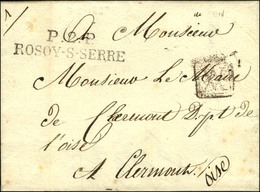 P. 2. P.
ROSOY-S-SERRE
Monsieur
Monsieur Le Maire
de Clermont Dpt de
l'oise
A Clermont
oise